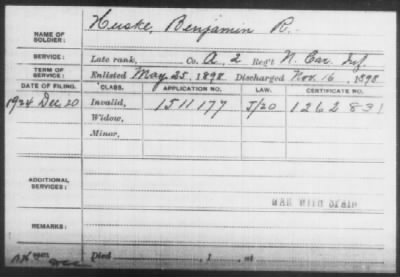 NAME OF SOLDIER: Huske, Benjamin R.
SERVICE: Late rank, Co. A, 2 Reg't N. Car. Inf.
TERM OF SERVICE: Enlisted May 25, 1898. Discharged Nov. 16, 1898
DATE OF FILING. CLASS. APPLICATION NO. LAW. CERTIFICATE NO.
1924 Dec 20 Invalid, 1511177 J/20 1262831
Widow,
Minor,
ADDITIONAL SERVICES:
WAR WITH SPAIN
REMARKS:
Died , 1 , at